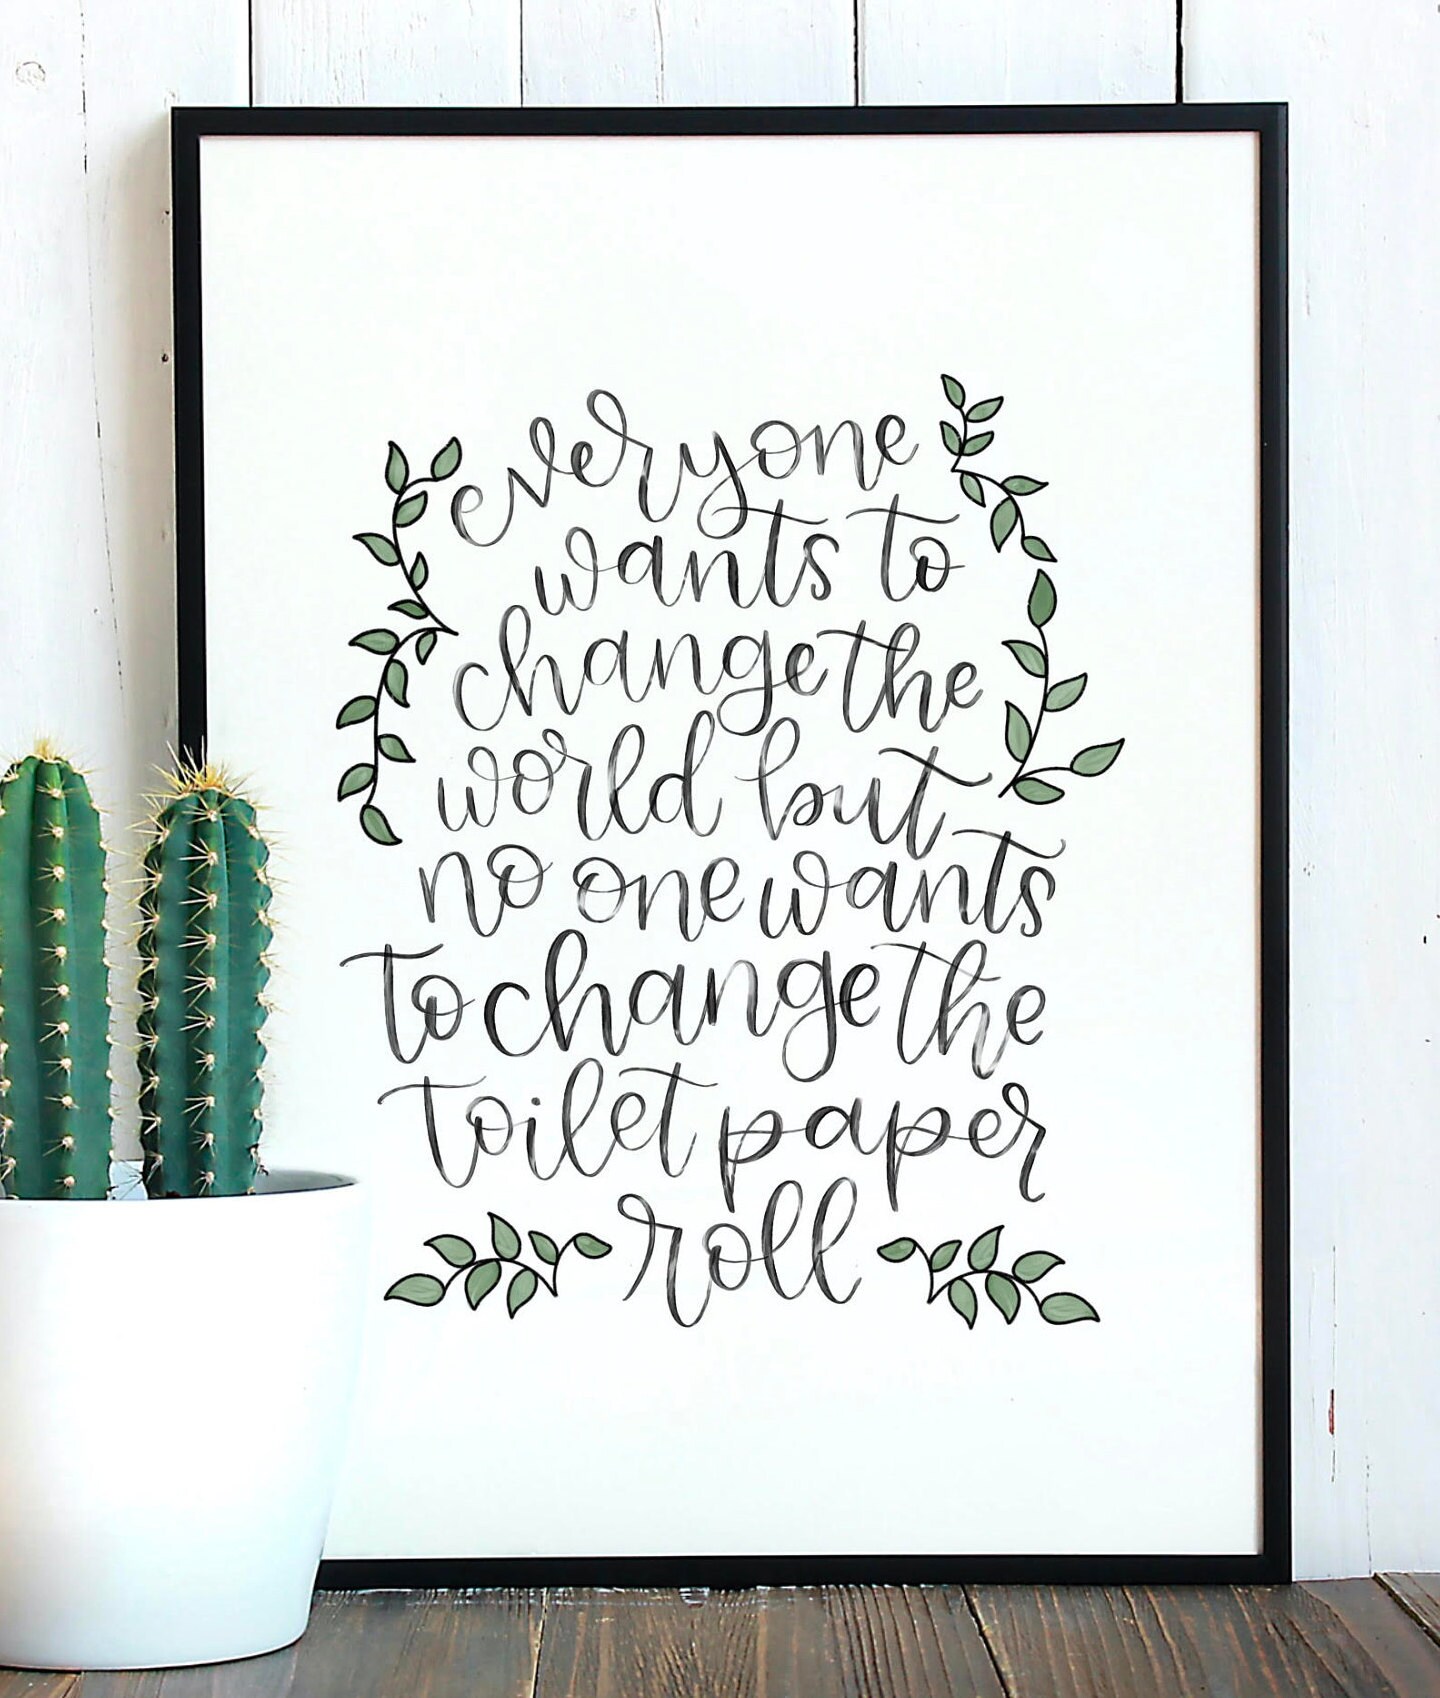 everyone
wants to
change the
world but
no one wants
to change the
toilet paper
roll